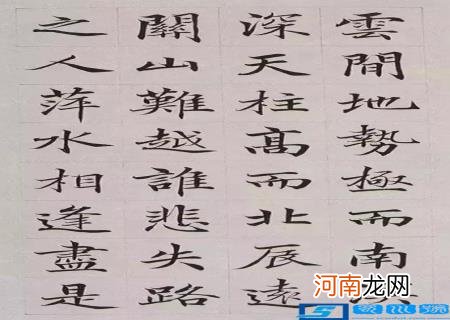 雲間地勢極而南
深天柱高而北辰遠
關山難越誰悲失路
之人萍水相逢盡是
河南龙网